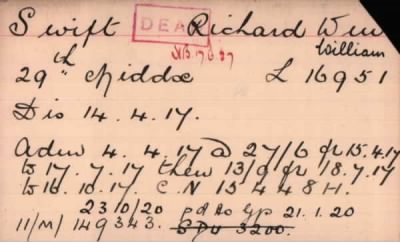 Swift DEAD Richard Wm
William
29th Middx L 16951
Dis 14.4.17.
Adm 4.4.17 @ 27/6 fr 15.4.17
to 17.7.17 then 13/9 fr 18.7.17
to 16.10.17. C.N 15448H.
23/10/20 pd to 21.1.20
11/M/149343. 3200.